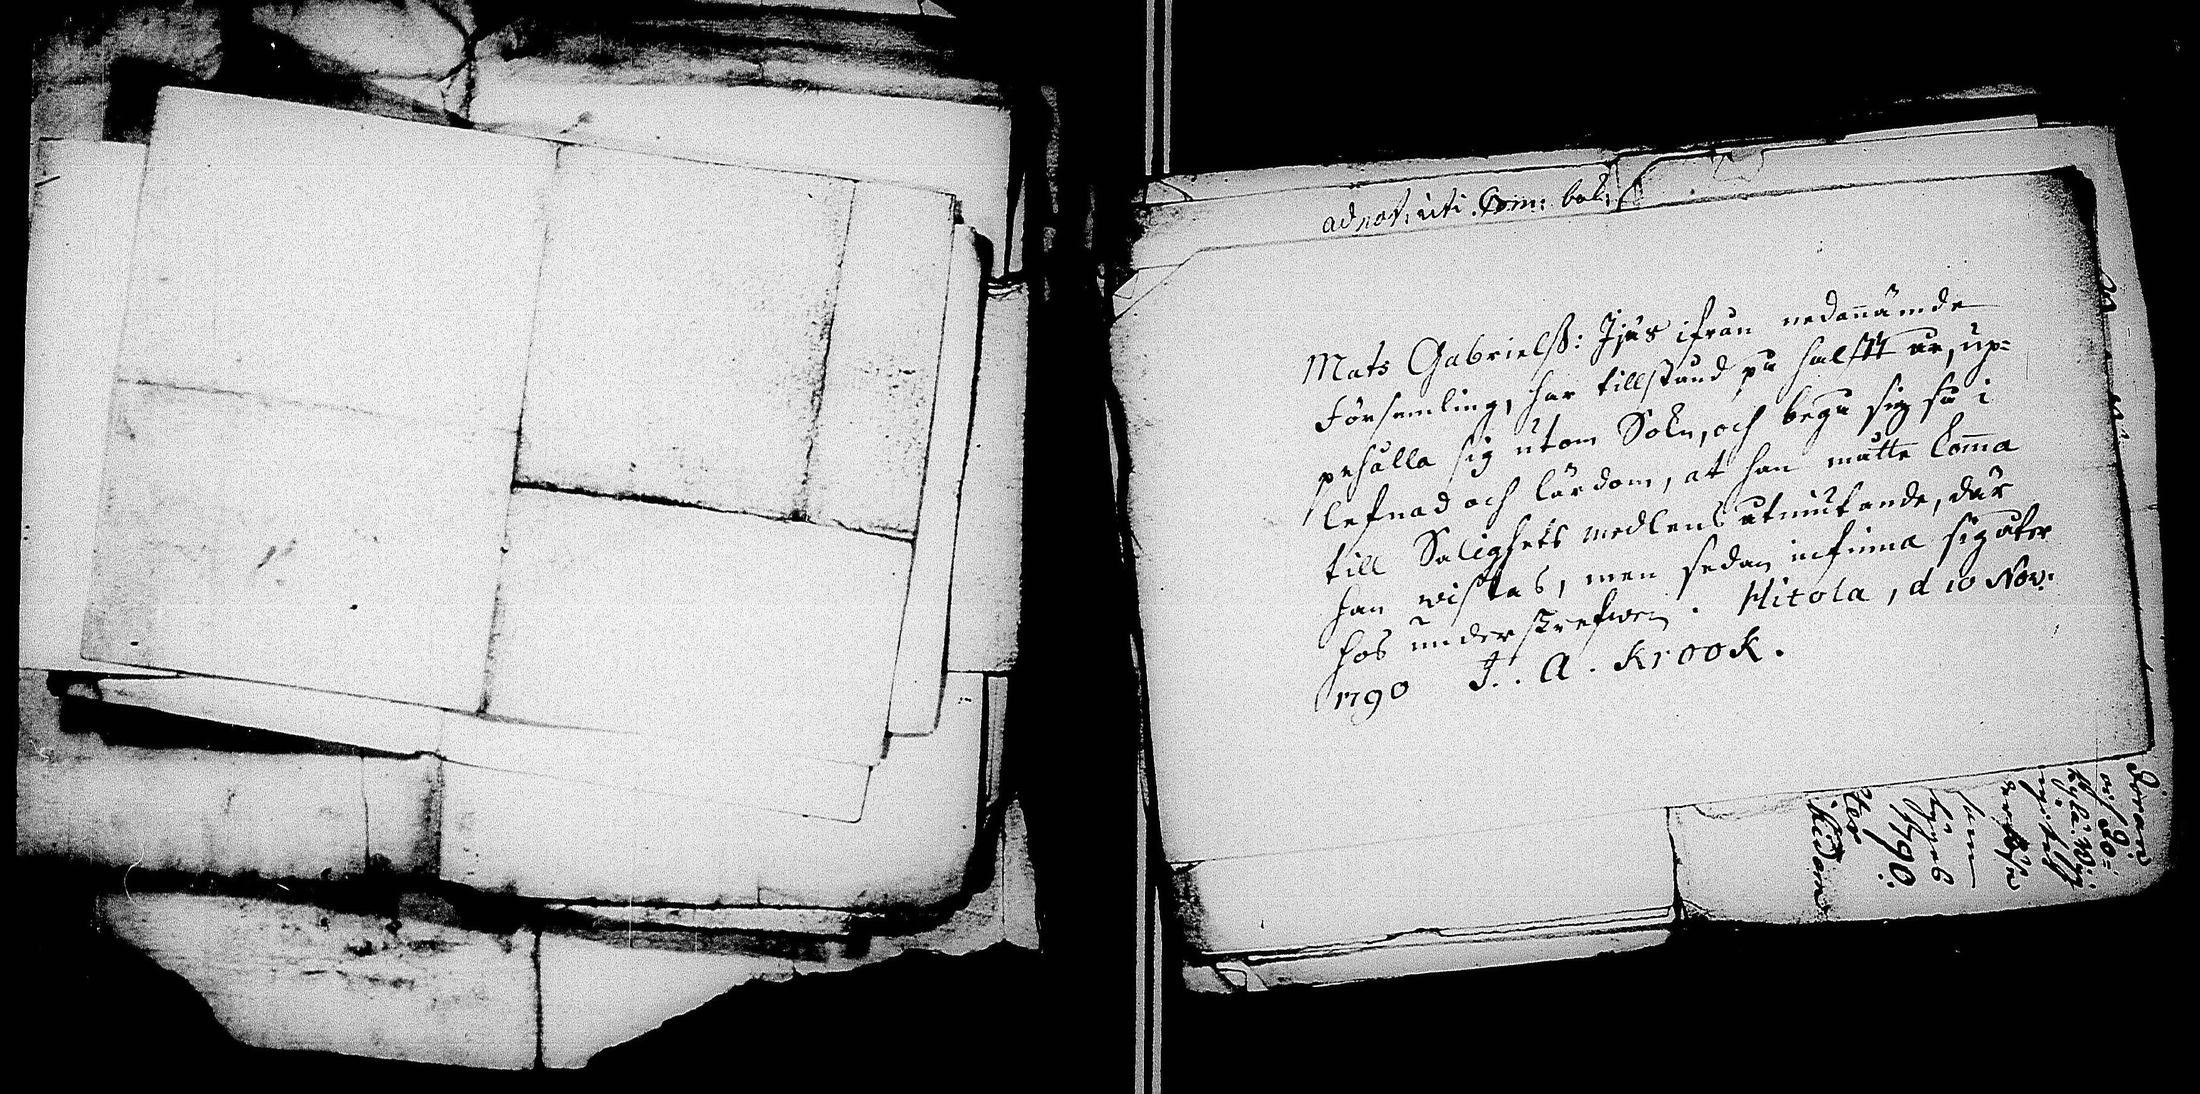 adnot: uti Com: bok:
Mats Gabrielsß: Ijäs ifrån nedannämde
Församling, har tillstånd på halftt år, up=
pehålla sig utom Sokn, och bega sig så i
lefnad och lärdom, at han måtte komma
till Salighets medlens utniutande, där
han wistas, men sedan infinna sig åter
hos underskrefwen. Hitola, d 10 Nov:
1790 J. A. Krook.
som
1790.